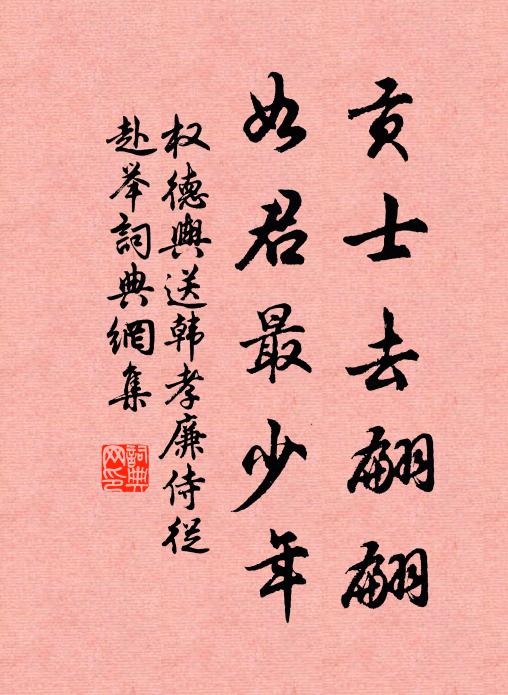 贡士去翩翩
如君最少年
权德輿送韩孝廉侍從
赴举詞典網集
詞典网印